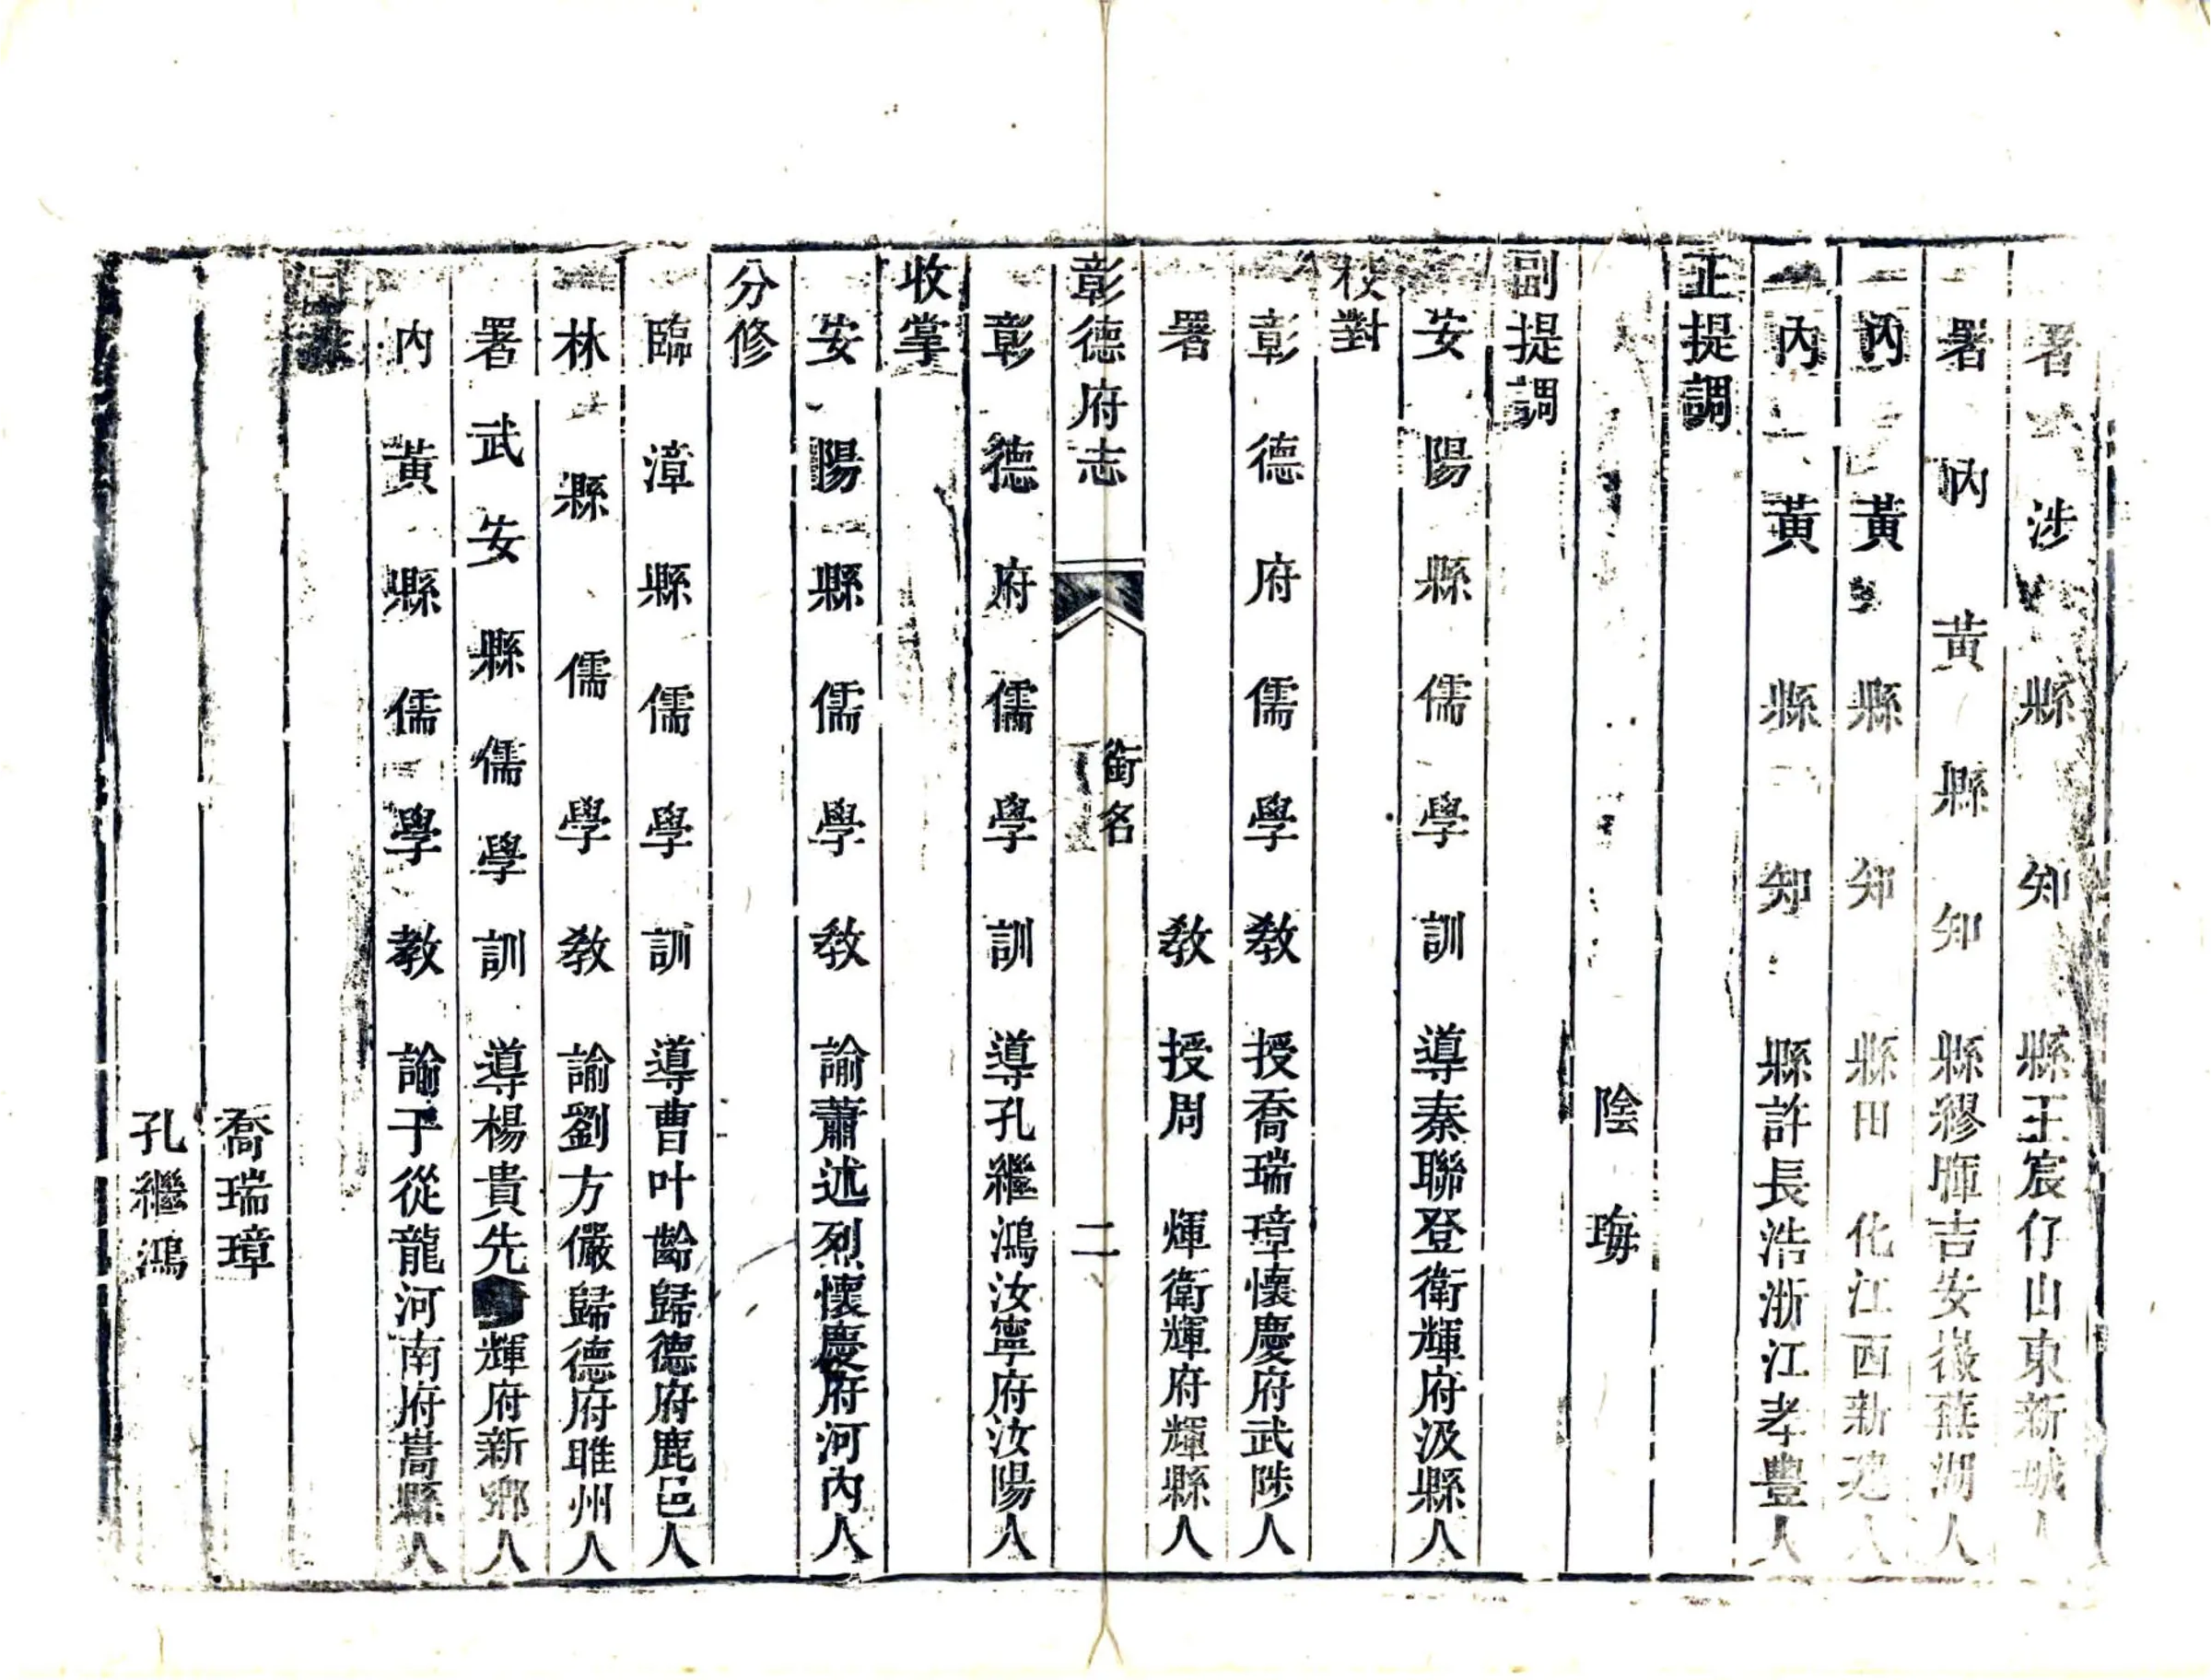 署涉縣知縣王宸仔山東新城人
署內黃縣知縣繆晖吉安徽蕪湖人
內黃縣知縣田化江西新建人
內黃縣知縣許長浩浙江孝豐人
正提調
陰珻
副提調
安陽縣儒學訓導秦聯登衛輝府汲縣人
校對
彰德府儒學教授喬瑞璋懷慶府武陟人
署教授周煇衛輝府輝縣人
彰德府志 銜名 二
彰德府儒學訓導孔繼鴻汝寧府汝陽人
收掌
安陽縣儒學教諭蕭述烈懷慶府河內人
分修
臨漳縣儒學訓導曹叶齡歸德府鹿邑人
林縣儒學教諭劉方儼歸德府睢州人
署武安縣儒學訓導楊貴先輝府新鄉人
內黃縣儒學教諭于從龍河南府嵩縣人
喬瑞璋
孔繼鴻